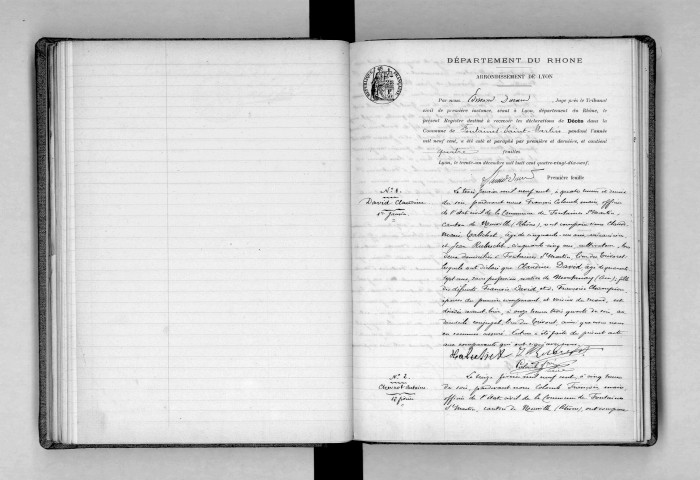 DÉPARTEMENT DU RHONE
ARRONDISSEMENT DE LYON
RÉPUBLIQUE FRANÇAISE
Par nous, Durand, Juge près le Tribunal
civil de première instance, séant à Lyon, département du Rhône, le
présent Registre destiné à recevoir les déclarations de Décès dans la
Commune de Fontaines-Saint-Martin, pendant l'année
mil neuf cent, a été coté et paraphé par première et dernière, et contient
quatre feuilles
Lyon, le trente-un décembre mil huit cent quatre-vingt-dix-neuf.
Première feuille
N° 1.
David Claudine
1er janvier.
Le trois janvier mil neuf cent, à quatre heures et demie
du soir, pardevant nous François Colomb maire officier
de l'état civil de la Commune de Fontaines St Martin,
canton de Neuville (Rhône), ont comparu Claude
Marie, âgé de cinquante un ans
et Jean, cinquante cinq ans cultivateur, tous
deux domiciliés à Fontaines St Martin,
lesquels ont déclaré que Claudine David âgée de quarante
sept ans, sans profession, native de (Ain), fille
des défunts François David et de Françoise
épouse du premier comparant, et voisine du second, est
décédée avant hier, à onze heures trois quarts du soir, au
domicile conjugal, ainsi que nous nous
en sommes assuré. Lecture a été faite du présent acte
aux comparants qui ont signé avec nous.
N° 2.
Antoine
janvier
Le janvier mil neuf cent, à cinq heures
du soir, pardevant nous Colomb François maire,
officier de l'état civil de la Commune de Fontaines
St Martin, canton de Neuville (Rhône), ont comparu